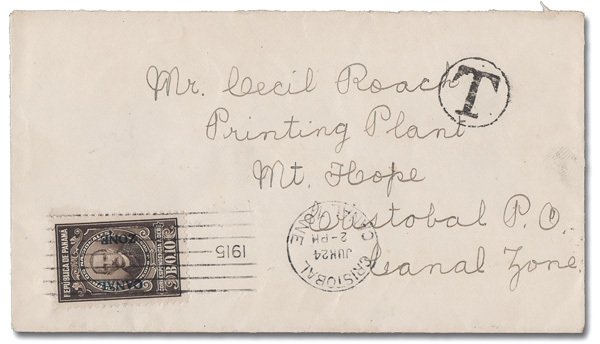 Mr. Cecil Roach
T
Printing Plant
Mt. Hope
Cristobal P.O.
Canal Zone.
REPUBLICA DE PANAMA
CANAL
ZONE
B.0.10
1915
CRISTOBAL
JUN 24
2-PM
CANAL ZONE